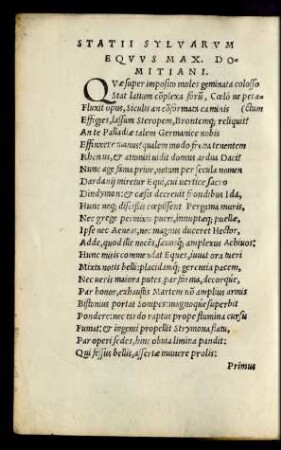 STATII SYLVARVM
EQVVS MAX. DO-
MITIANI.
QVæ super imposito moles geminata colosso
Stat latium cõplexa forũ, Cœlo ne peta=
Fluxit opus, Siculis an cõformata caminis (ctum
Effigies, lassum Steropem, Brontemq; reliquit?
An te Palladiæ talem Germanice nobis
Effinxere manus? qualem modo frena tenentem
Rhenus, & attoniti uidit domus ardua Daci?
Nunc age fama prior, notum per secula nomen
Dardanij miretur Equi, cui uertice sacro
Dindymon: & cæsis decreuit frondibus Ida,
Hunc neq; discissis cœpissent Pergama muris,
Nec grege permixto pueri, innuptæq; puellæ,
Ipse nec Aeneas, nec magnus duceret Hector,
Adde, quod ille nocēs, sæuosq; amplexus Achiuos:
Hunc mitis commendat Eques, iuuat ora tueri
Mixta notis belli: placidamq; gerentia pacem,
Nec ueris maiora putes, par forma, decorque,
Par honor, exhaustis Martem nõ amplius armis
Bistonius portat sonipes: magnoque superbit
Pondere: nec tardo raptus prope flumina cursu
Fumat: & ingenti propellit Strymona flatu,
Par operi sedes, hinc obuia limina pandit:
Qui fessus bellis, assertæ munere prolis:
Primus